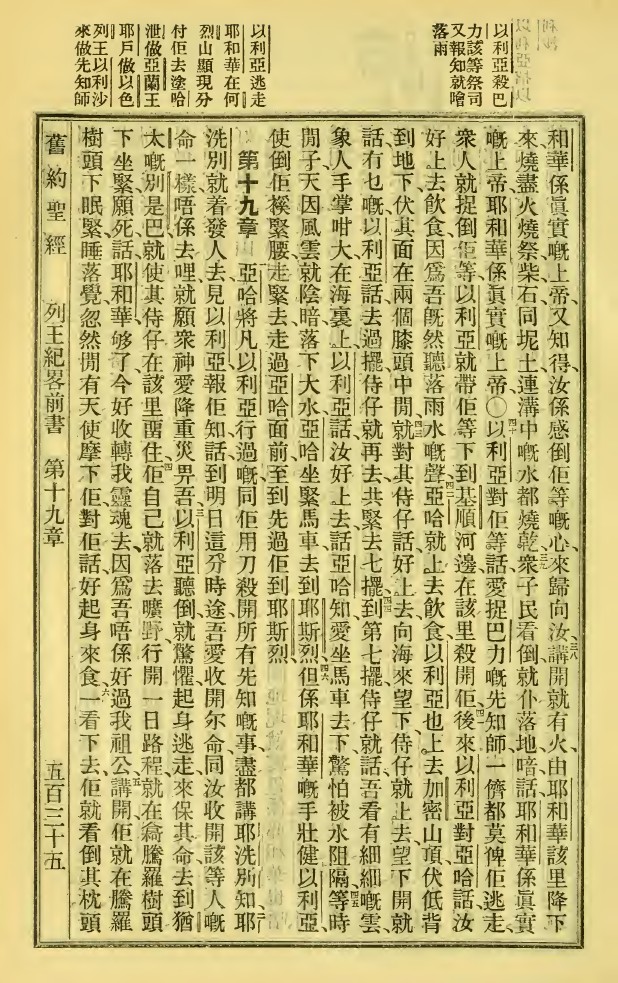 以利亞殺巴
力該等祭司
又報知就噲
落雨
以利亞逃走
耶和華在何
烈山顯現分
付佢去塗哈
泄做亞蘭王
耶戶做以色
列王以利沙
來做先知師
和華係眞實嘅上帝、又知得汝係感倒佢等嘅心、來歸向汝、三八講開就有火由耶和華該里降下
來、燒盡火燒祭柴石同坭土、連溝中嘅水都燒乾、三九衆子民看倒、就仆落地唔話、耶和華係眞實
嘅上帝、耶和華係眞實嘅上帝、〇四十以利亞對佢等話、愛捉巴力嘅先知師、一儕都莫俾佢逃走、
衆人就捉倒佢等、以利亞就帶佢等下到基順河邊、在該里殺開佢、四一後來以利亞對亞哈話、汝
好上去飲食、因爲吾旣然聽落雨水嘅聲、四二亞哈就上去飲食、以利亞也上去加密山頂、伏低背
到地下、伏其面在兩個膝頭中間、四三就對其侍仔話、好上去向海來望下、侍仔就上去、望下開就
話有乜嘅、以利亞話、去過擺、侍仔就再去、共緊去七擺、四四到第七擺、侍仔就話、吾看有細細嘅雲、
象人手掌咁大、在海裏上、以利亞話、汝好上去、話亞哈知、愛坐馬車去下、驚怕被水阻隔、四五等時
間子、天因風雲就陰暗、落下大水、亞哈坐緊馬車去到耶斯烈、四六但係耶和華嘅手壯健以利亞、
使倒佢褛緊腰、走緊去、走過亞哈面前、至到先過佢到耶斯烈、
第十九章　亞哈將凡以利亞行過嘅、同佢用刀殺開所有先知嘅事、盡都講耶洗別知、二耶
洗別就着發人去見以利亞、報佢知話、到明日這分時、吾愛收開尔命、同汝收開該等人嘅
命一樣、唔係去哩、就願衆神愛降重災畀吾、三以利亞聽倒就驚懼、起身逃走、來保其命、去到猶
太嘅別是巴、就使其侍仔在該里畱住、四佢自己就落去曠野、行開一日路程、就在裔騰羅樹頭
下坐緊、願死話、耶和華够了、今好收轉我靈魂去、因爲吾唔係好過我祖公、五講開佢就在騰羅
樹頭下眠緊睡落覺、忽然間有天使摩下佢、對佢話、好起身來食、六一看下去、佢就看倒其枕頭
舊約聖經　列王紀畧前書　第十九章　五百三十五